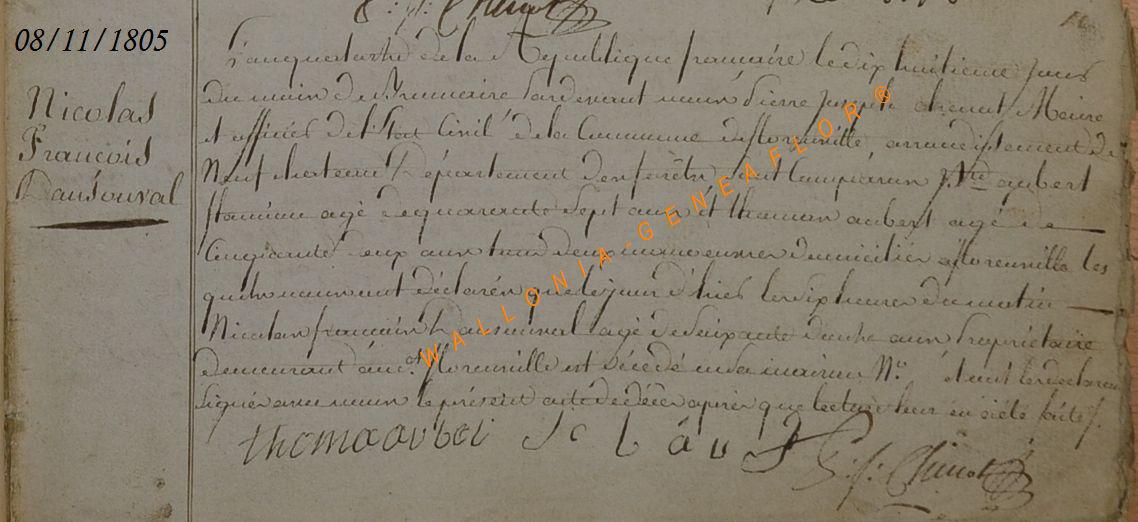 08/11/1805
P: j: Chenot
Nicolas
François
Dansonval
L'an quatorze de la République française le dix huitieme jour
du mois de Brumaire pardevant nous Pierre Joseph Chenot Maire
et officier de l'Etat Civil de la Commune de florenville, arrondissement de
Neufchateau Département des forêts, sont comparus aubert
agé de quarante Sept ans et thomas aubert agé de
Cinquante deux ans tous deux manoeuvres domiciliés a florenville les
quels nous ont déclarés que le jour d'hier les dix heures du matin
Nicolas françois Dansonval agé de Soixante ans Propriétaire
demeurant aud.t florenville est décédé en sa maison N.o et ont les declarans
Signés avec nous le présent acte de décès apres que lecture leur en a été faite /.
thomas aubert
P: j: Chenot
WALLONIA-GENEAFLOR ®